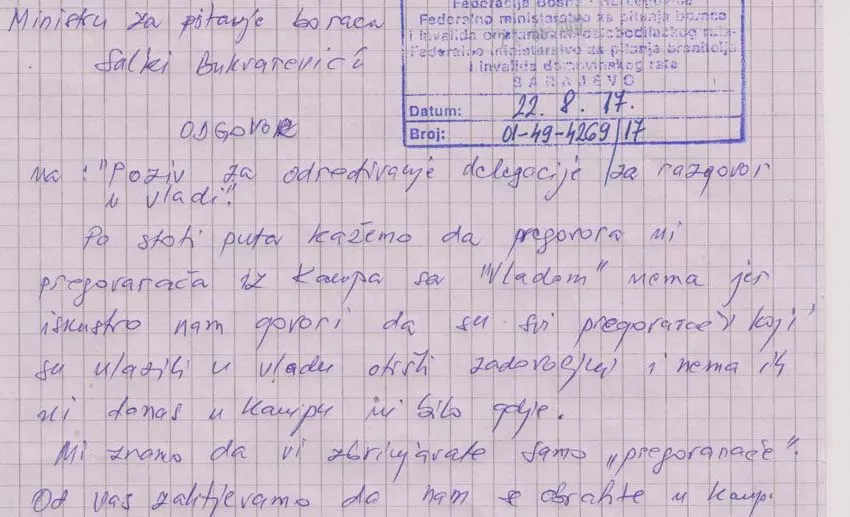 Ministru za pitanje boraca
Salki Bukvarević
Federacija Bosne i Hercegovine
Federalno ministarstvo za pitanja boraca
i invalida odbrambeno-oslobodilačkog rata
Federalno ministarstvo za pitanja branitelja
i invalida domovinskog rata
SARAJEVO
Datum: 22. 8. 17.
Broj: 01-49-4269/17
ODGOVOR
na: "Poziv za određivanje delegacije za razgovor
u vladi".
Po stoti puta kažemo da pregovora ni
pregovarača iz Kampa sa "Vladom" nema jer
iskustvo nam govori da su svi pregovarači koji
su ulazili u vladu otišli zadovoljni i nema ih
ni danas u kampu ni bilo gdje.
Mi znamo da vi zbrinjavate samo „pregovarače".
Od vas zahtjevamo da nam se obratite u kamp.